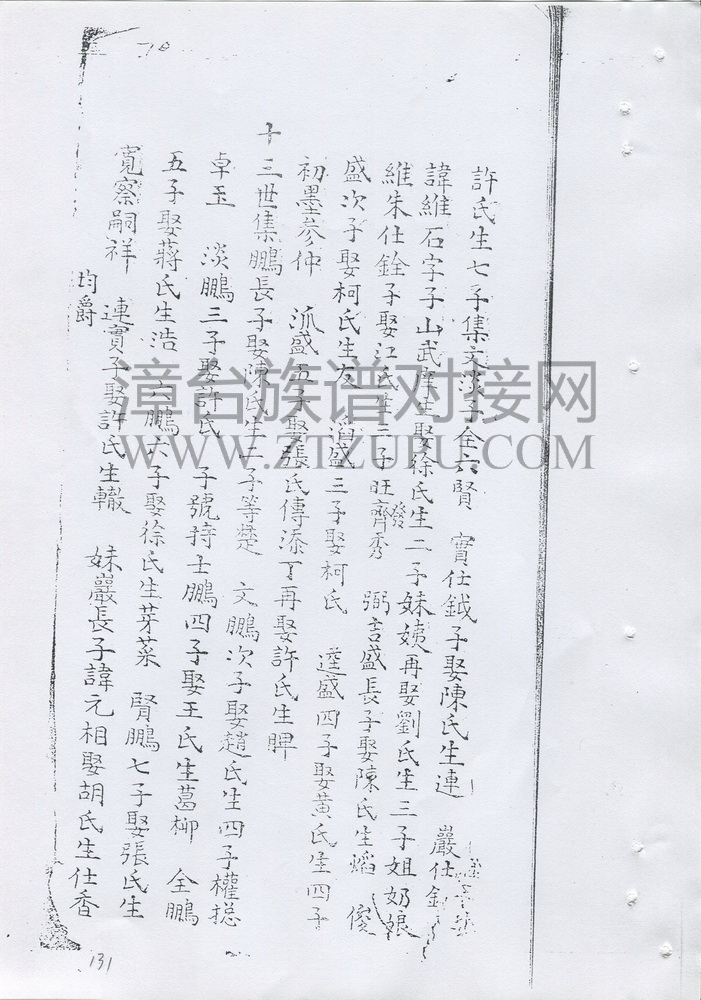 許氏生七子集文淡子全六賢 實仕鉞子娶陳氏生連 嚴仕
諱維石字子山武庠生娶徐氏生二子妹姨再娶劉氏生三子姐奶娘
維朱仕銓子娶江氏生三子旺發齊秀 弼言盛長子娶陳氏生熖 俊
盛次子娶柯氏生友 滔盛三子娶柯氏 達盛四子娶黃氏生四子
初墨参仲 派盛五子娶張氏傳添丁再娶許氏生睥
十三世集鵬長子娶陳氏生二子等楚 文鵬次子娶趙氏生四子權捴
卓玉 淡鵬三子娶許氏 子號持士鵬四子娶王氏生葛柳 全鵬
五子娶蔣氏生浩 六鵬六子娶徐氏生芽菜 賢鵬七子娶張氏生
寬察嗣祥均爵 連實子娶許氏生轍 妹嚴長子諱元相娶胡氏生仕香
131
漳台族谱对接网
WWW.ZTZUPU.COM